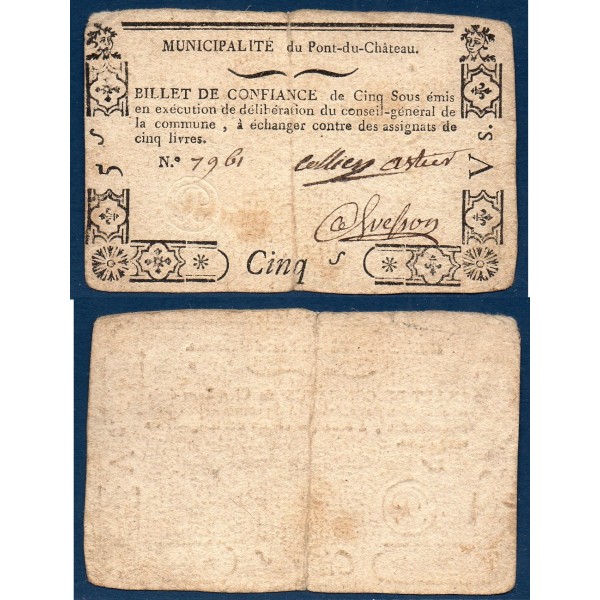 MUNICIPALITÉ du Pont-du-Château.
BILLET DE CONFIANCE de Cinq Sous émis
en exécution de délibération du conseil-général de
la commune, à échanger contre des assignats de
cinq livres.
N.º 7961
5 S
V s.
Cinq S